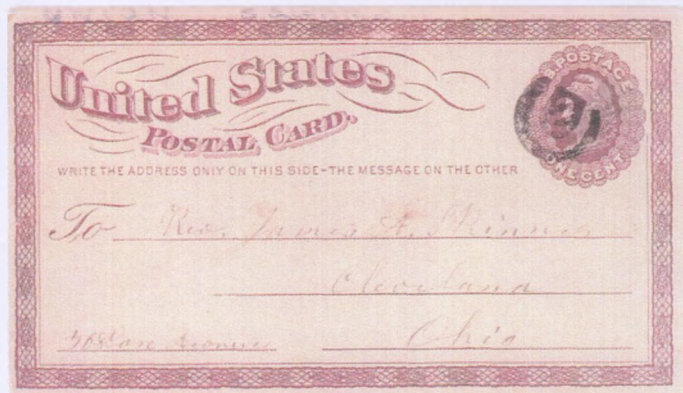 United States
POSTAL CARD.
U.S. POSTAGE
ONE CENT
WRITE THE ADDRESS ONLY ON THIS SIDE-THE MESSAGE ON THE OTHER
To Rev. James A.
Cleveland
Ohio